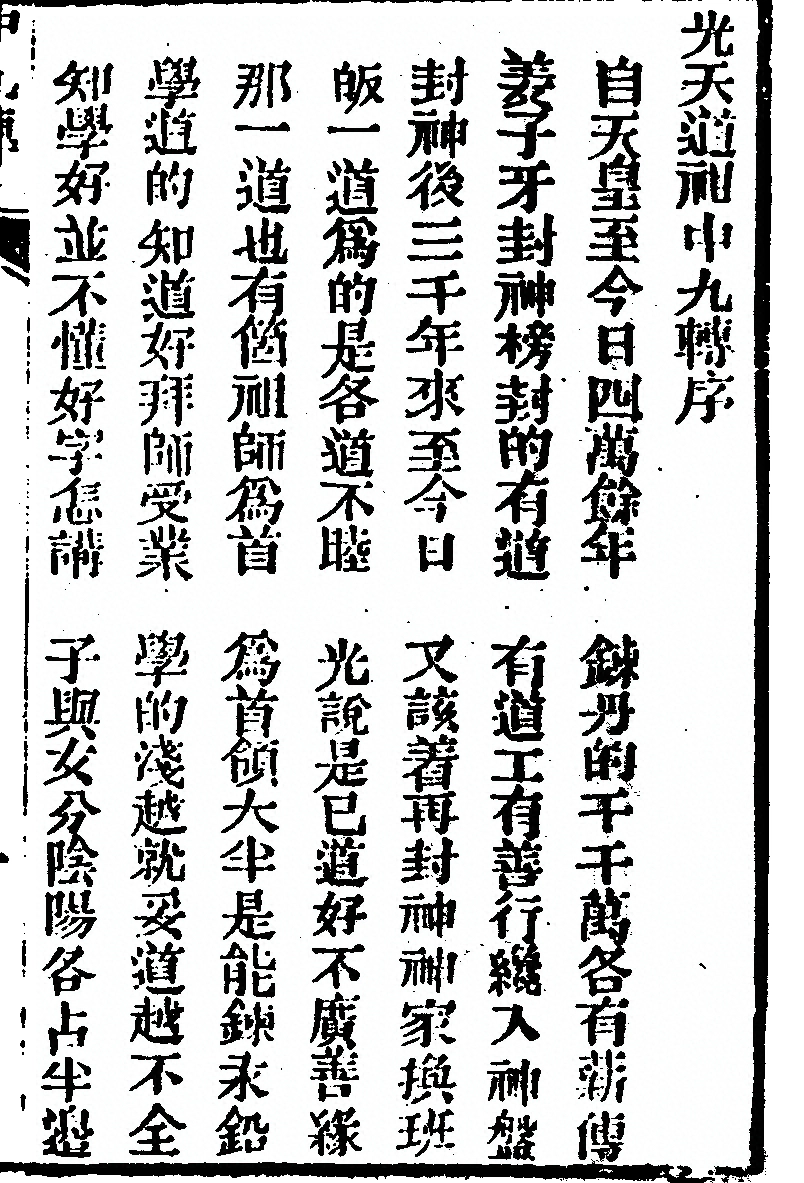 光天道祖中九轉序
自天皇至今日四萬餘年 鍊丹的千千萬各有薪傳
姜子牙封神榜封的有道 有道工有善行纔入神盤
封神後三千年來至今日 又該着再封神神家換班
皈一道爲的是各道不睦 光說是已道好不廣善緣
那一道也有箇祖師爲首 爲首領大半是能鍊汞鉛
學道的知道好拜師受業 學的淺越就妥道越不全
知學好並不懂好字怎講 子與女分陰陽各占半邊